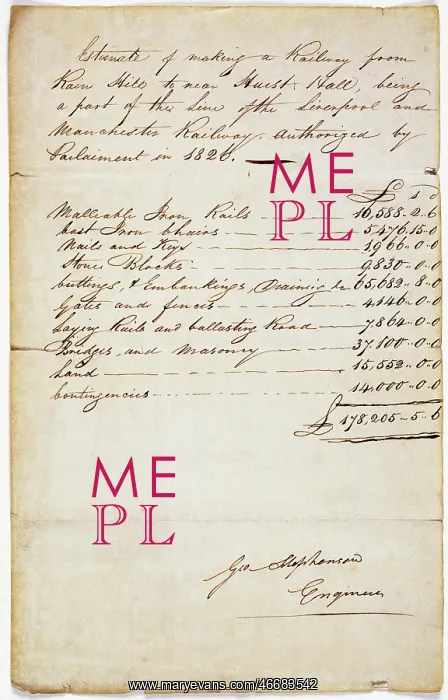 Estimate of making a Railway from
Rain Hill to near Huest Hall, being
a part of the Line of the Liverpool and
Manchester Railway, authorized by
Parlaiment in 1826.
£ s d
Malleable Iron Rails 10,588..2..6
Cast Iron Chairs 5,476..15..0
Nails and Keys 1,966..0..0
Stone Blocks 9,830..0..0
Cuttings, & Embankings, Draining &c 65,682..8..0
Gates and fences 4,146..0..0
Laying Rails and ballasting Road 7,864..0..0
Bridges, and Masonry 37,100..0..0
Land 15,552..0..0
Contingencies 14,000..0..0
£178,205..5..6
ME
PL
ME
PL
Geo Stephenson
Engineer
www.maryevans.com/46683542